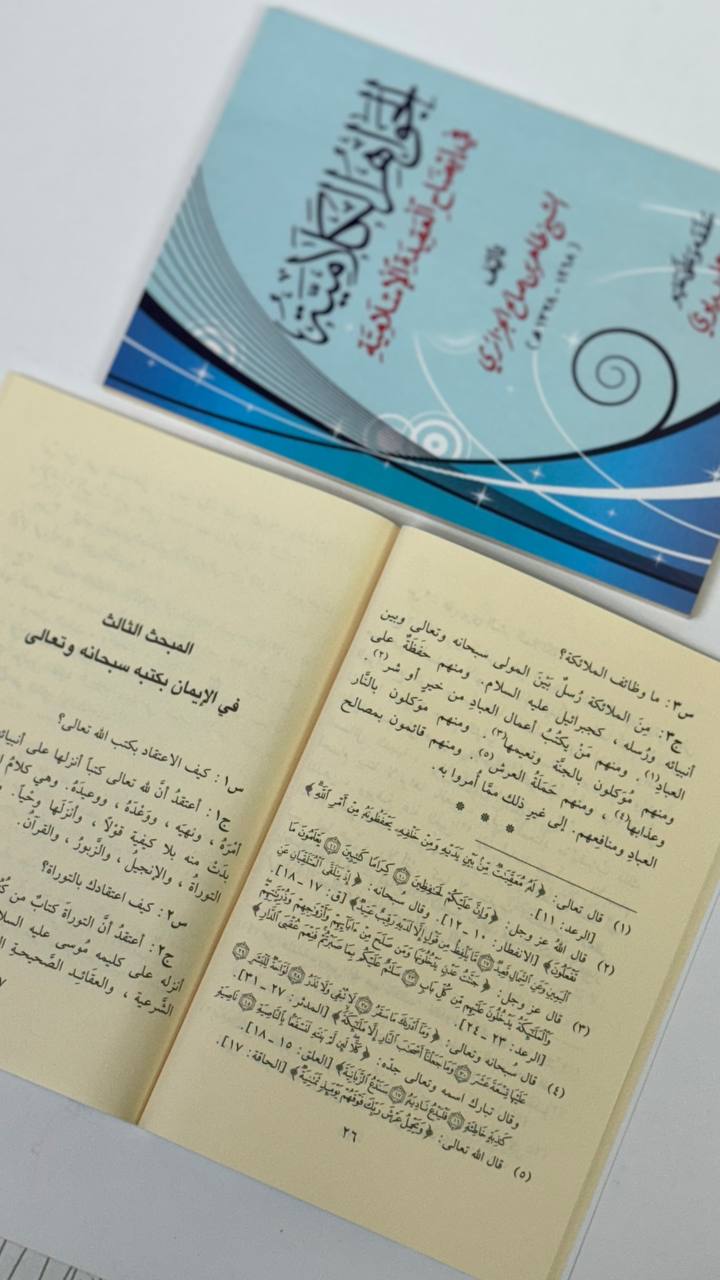 الجواهر الكلامية
في إيضاح العقيدة الإسلامية
تأليف
الشيخ طاهر بن صالح الجزائري
س٣: ما وظائف الملائكة؟
ج٣: مِنَ الملائكة رُسلٌ بَيْنَ المولى سبحانه وتعالى وبين
أنبيائه ورُسله ، كجبرائيل عليه السلام. ومنهم حفَظَةٌ على
العبادِ(١). ومنهم مَنْ يكتُبُ أعمال العبادِ من خيرٍ أو شر(٢).
ومنهم مُوَكلون بالجنَّة ونعيمها(٣). ومنهم مؤكلون بالنَّار
وعذابها(٤) ، ومنهم حَمَلَةُ العرشِ(٥). ومنهم قائمون بمصالح
العبادِ ومنافِعهم. إلى غيرِ ذلك ممَّا أُمروا به.
* * *
(١) قال تعالى: ﴿لَهُ مُعَقِّبَٰتٌ مِّنۢ بَيْنِ يَدَيْهِ وَمِنْ خَلْفِهِۦ يَحْفَظُونَهُۥ مِنْ أَمْرِ ٱللَّهِ﴾
[الرعد: ١١].
(٢) قال اللهُ عز وجل: ﴿وَإِنَّ عَلَيْكُمْ لَحَٰفِظِينَ ١٠ كِرَامًا كَٰتِبِينَ ١١ يَعْلَمُونَ مَا
تَفْعَلُونَ﴾ [الانفطار: ١٠ ـ ١٢]. وقال سُبحانه: ﴿إِذْ يَتَلَقَّى ٱلْمُتَلَقِّيَانِ عَنِ
ٱلْيَمِينِ وَعَنِ ٱلشِّمَالِ قَعِيدٌ ١٧ مَّا يَلْفِظُ مِن قَوْلٍ إِلَّا لَدَيْهِ رَقِيبٌ عَتِيدٌ﴾ [ق: ١٧ ـ ١٨].
(٣) قال عز وجل: ﴿جَنَّٰتُ عَدْنٍ يَدْخُلُونَهَا وَمَن صَلَحَ مِنْ ءَابَآئِهِمْ وَأَزْوَٰجِهِمْ وَذُرِّيَّٰتِهِمْ
وَٱلْمَلَٰٓئِكَةُ يَدْخُلُونَ عَلَيْهِم مِّن كُلِّ بَابٍ ٢٣ سَلَٰمٌ عَلَيْكُم بِمَا صَبَرْتُمْ فَنِعْمَ عُقْبَى ٱلدَّارِ﴾
[الرعد: ٢٣ ـ ٢٤].
(٤) قال سُبحانه وتعالى: ﴿وَمَآ أَدْرَىٰكَ مَا سَقَرُ ٢٧ لَا تُبْقِى وَلَا تَذَرُ ٢٨ لَوَّاحَةٌ لِّلْبَشَرِ ٢٩
عَلَيْهَا تِسْعَةَ عَشَرَ ٣٠ وَمَا جَعَلْنَآ أَصْحَٰبَ ٱلنَّارِ إِلَّا مَلَٰٓئِكَةً﴾ [المدثر: ٢٧ ـ ٣١].
وقال تبارك اسمه وتعالى جدّه: ﴿كَلَّا لَئِن لَّمْ يَنتَهِ لَنَسْفَعًۢا بِٱلنَّاصِيَةِ ١٥ نَاصِيَةٍ
كَٰذِبَةٍ خَاطِئَةٍ ١٦ فَلْيَدْعُ نَادِيَهُۥ ١٧ سَنَدْعُ ٱلزَّبَانِيَةَ﴾ [العلق: ١٥ ـ ١٨].
(٥) قال الله تعالى: ﴿وَيَحْمِلُ عَرْشَ رَبِّكَ فَوْقَهُمْ يَوْمَئِذٍ ثَمَٰنِيَةٌ﴾ [الحاقة: ١٧].
٢٦
المبحث الثالث
في الإيمان بكتبه سبحانه وتعالى
س١: كيف الاعتقاد بكتب الله تعالى؟
ج١: أعتقدُ أنَّ لله تعالى كتباً أنزلها على أنبيائ
أمْرَهُ ، ونهيَه ، ووَعْدَهُ ، ووعيدَهُ. وهي كلامُ
بدَتْ منه بلا كيفية قوْلاً ، وأنزلَها وحْياً.
التوراةُ ، والإنجيل ، والزَّبورُ ، والقرآنُ.
س٢: كيف اعتقادك بالتوراة؟
ج٢: أعتقدُ أنَّ التوراةَ كتابٌ من
أنزله على كليمه مُوسى عليه السلا
الشَّرعية ، والعقائِد الصَّحيحةِ